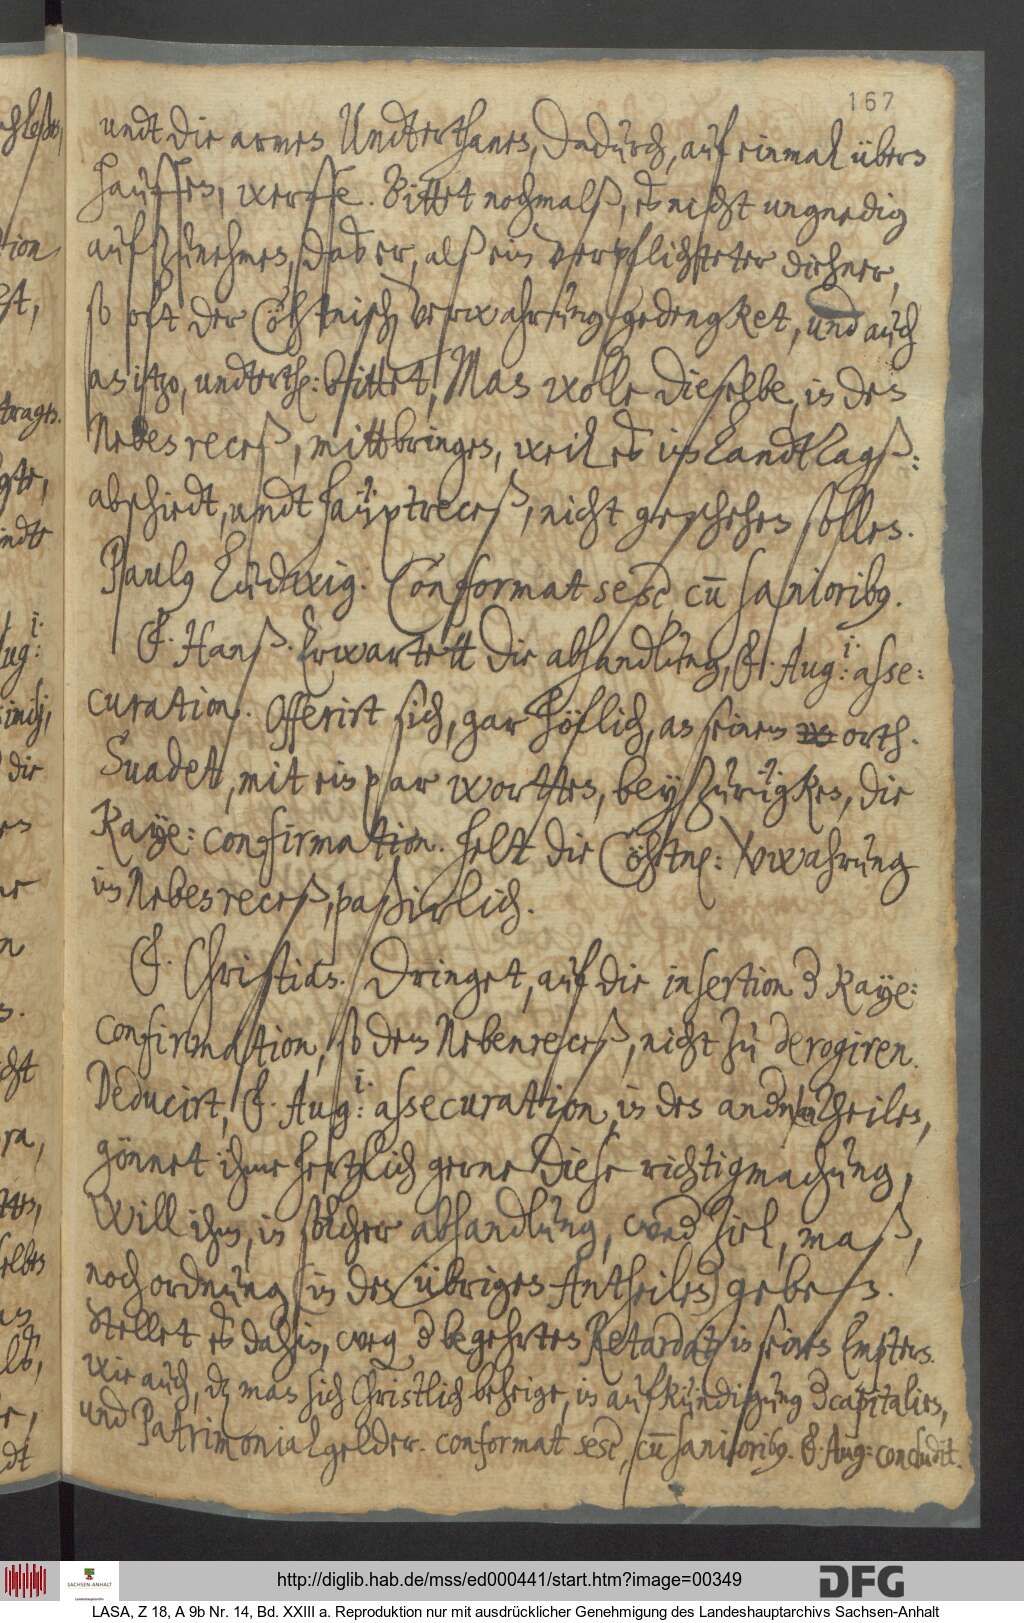 167
undt die armen Undterthanen, dadurch, auf einmal übern
hauffen, werffe. Bittet nochmalß, es nicht ungnedig
aufzunehmen, das er, alß ein verpflichteter diehner,
so oft der Cöhtnisch Verwahrung gedengket, und auch
an itzo, undterth: bittet, Man wolle dieselbe, in den
Neben receß, mitt bringen, weil es im Landtags=
abschiedt, undt haüptreceß, nicht geschehen sollen.
Paulg Ludwig. Conformat sese, cu sanioribg.
F. Hanß. Erwartett die abhandlung, F. Augi: asse=
curation. Offerirt sich, gar höflich, an seinem orth.
Suadett, mit ein par worten, bey Zürügken, die
Kaye: confirmation. helt die Cöhtn: Vwahrung
im Nebenreceß, paßirlich.
F. Christian. Dringet, auf die insertion d Kaye:
confirmation, so dem Nebenreceß, nicht Zu derogiren.
Deducirt, F. Augi: assecuration, in des andn theiles,
gönnet ihme hertzlich gerne diese richtigmachung,
Will ihm, in solcher abhandlung, wed Ziel, maß,
noch ordnung (in des übrigen Antheiles) geben.
Stellet es dahin, weg d begehrten Retardat in seinen Emptern.
wie auch, dz man sich Christlich bezeige, in aufkündigung d capitalien,
und Patrimonialgelder. conformat sese, cu sanioribg. F. Aug: concludit.
tion
die
http://diglib.hab.de/mss/ed000441/start.htm?image=00349
SACHSEN-ANHALT
DFG
LASA, Z 18, A 9b Nr. 14, Bd. XXIII a. Reproduktion nur mit ausdrücklicher Genehmigung des Landeshauptarchivs Sachsen-Anhalt